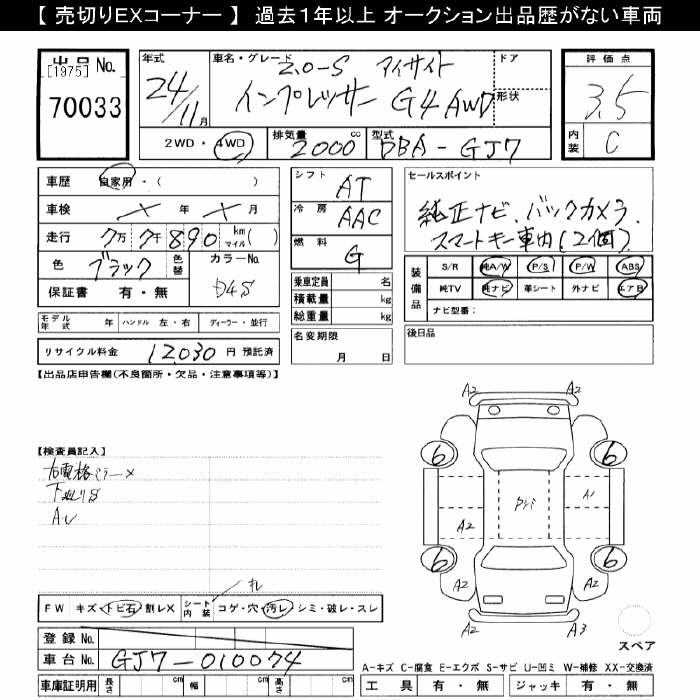 【 売切りEXコーナー 】 過去1年以上 オークション出品歴がない車両
出品 No.
[1975]
70033
年式
24/11月
車名・グレード
2.0-S アイサイト
インプレッサー G4 AWD
ドア
形状
2WD・4WD
排気量 2000 cc
型式 DBA-GJ7
評価点
3.5
内装 C
車歴 自家用・( )
車検 メ 年 メ 月
走行 7万 7千 890 km マイル( )
色 ブラック 色替
カラーNo. D4S
保証書 有・無
シフト AT
冷房 AAC
燃料 G
乗車定員 名
積載量 kg
総重量 kg
名変期限
月 日
セールスポイント
純正ナビ、バックカメラ、
スマートキー車内(2個)
装備品
S/R 純A/W P/S P/W ABS
純TV 純ナビ 革シート 外ナビ エアB
ナビ型番:
モデル年式 年 ハンドル 左・右 ディーラー・並行
リサイクル料金 12,030 円 預託済
後日品
【出品店申告欄(不良箇所・欠品・注意事項等)】
【検査員記入】
右電格ミラーメ
下廻りS
AU
A2 A2
6 6
A1
A2
6 6
A2 A2
A2 A3
スペア
FW キズ・トビ石・割レX
シート内装 コゲ・穴・汚レ・シミ・破レ・スレ
登録 No.
車台 No. GJ7-010074
車庫証明用 長さ cm 幅 cm 高さ cm
A-キズ C-腐食 E-エクボ S-サビ U-凹ミ W-補修 XX-交換済
工具 有・無 ジャッキ 有・無